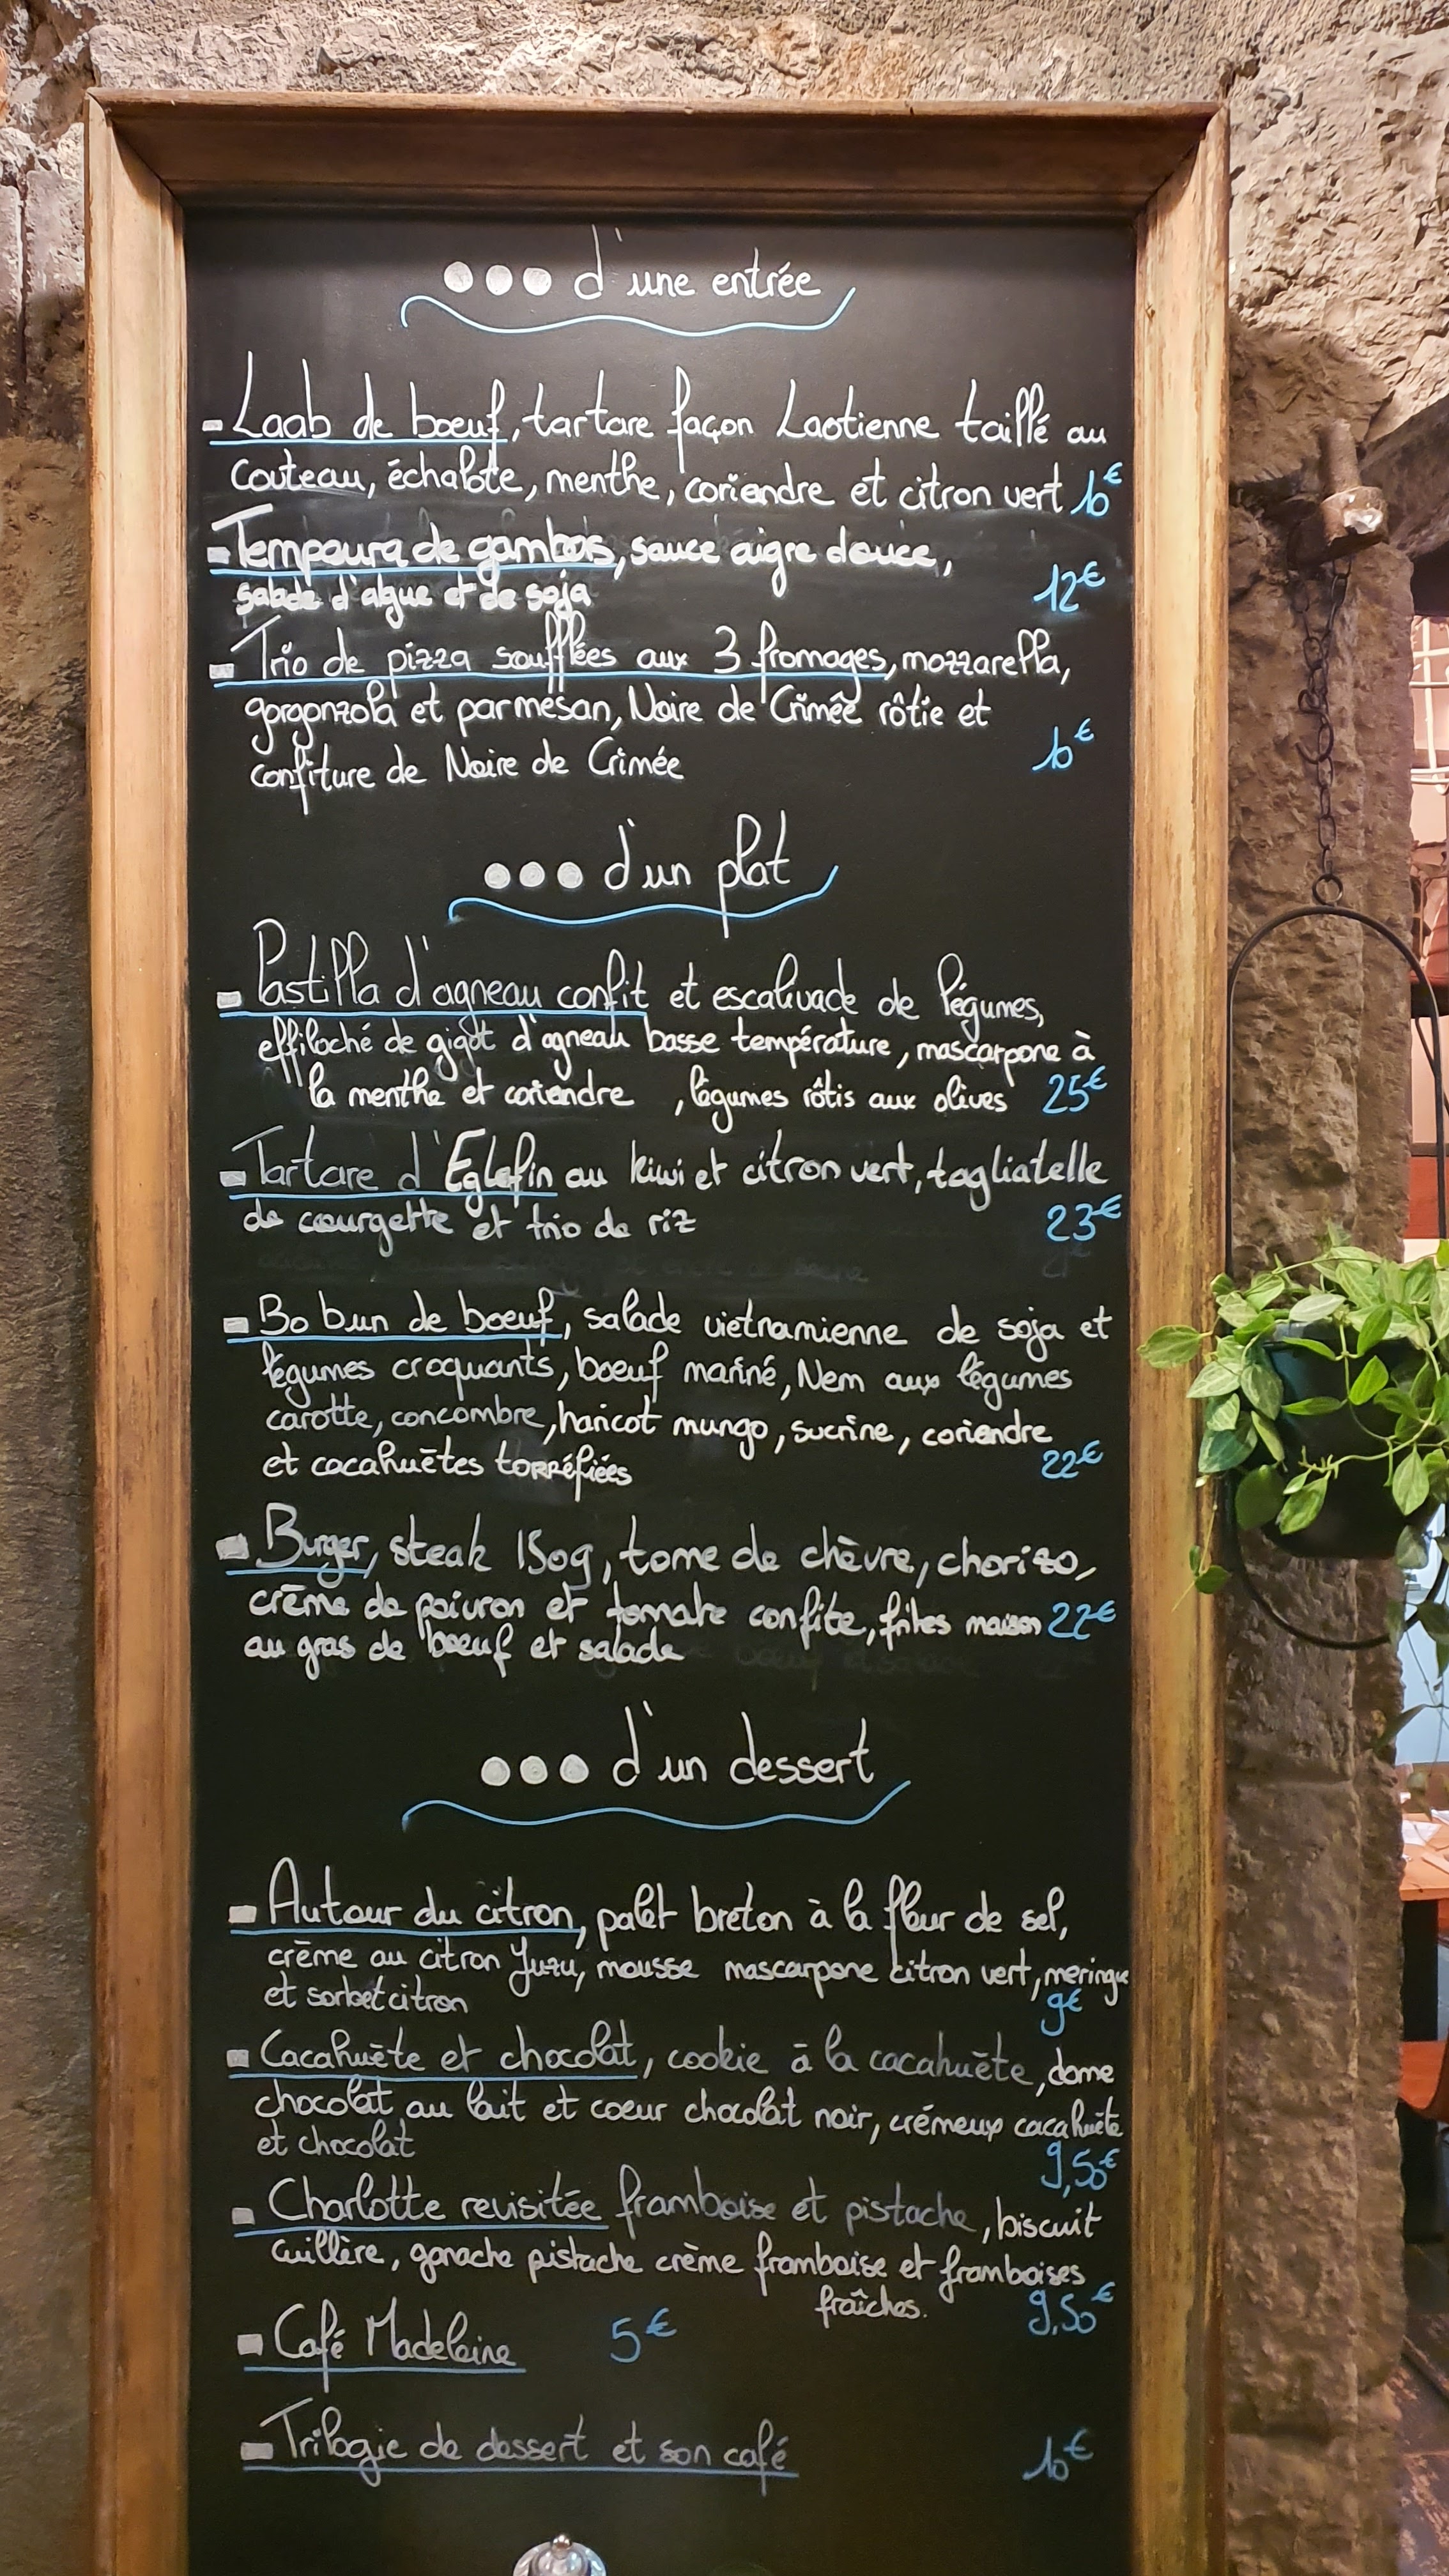 ... d'une entrée
- Laab de boeuf, tartare façon Laotienne taillé au
couteau, échalote, menthe, coriandre et citron vert 10€
- Tempoura de gambas, sauce aigre douce,
salade d'algue et de soja 12€
- Trio de pizza soufflées aux 3 fromages, mozzarella,
gorgonzola et parmesan, Noire de Crimée rôtie et
confiture de Noire de Crimée 10€
... d'un plat
- Pastilla d'agneau confit et escalivade de légumes,
effiloché de gigot d'agneau basse température, mascarpone à
la menthe et coriandre , légumes rôtis aux olives 25€
- Tartare d'Eglefin au kiwi et citron vert, tagliatelle
de courgette et trio de riz 23€
- Bo bun de boeuf, salade vietnamienne de soja et
légumes croquants, boeuf mariné, Nem aux légumes
carotte, concombre, haricot mungo, sucrine, coriandre
et cacahuètes torréfiées 22€
- Burger, steak 150g, tome de chèvre, chorizo,
crème de poivron et tomate confite, frites maison 22€
au gras de boeuf et salade
... d'un dessert
- Autour du citron, palet breton à la fleur de sel,
crème au citron Yuzu, mousse mascarpone citron vert, meringue
et sorbet citron 9€
- Cacahuète et chocolat, cookie à la cacahuète, dome
chocolat au lait et coeur chocolat noir, crémeux cacahuète
et chocolat 9,50€
- Charlotte revisitée framboise et pistache, biscuit
cuillère, ganache pistache crème framboise et framboises
fraîches. 9,50€
- Café Madeleine 5€
- Trilogie de dessert et son café 10€